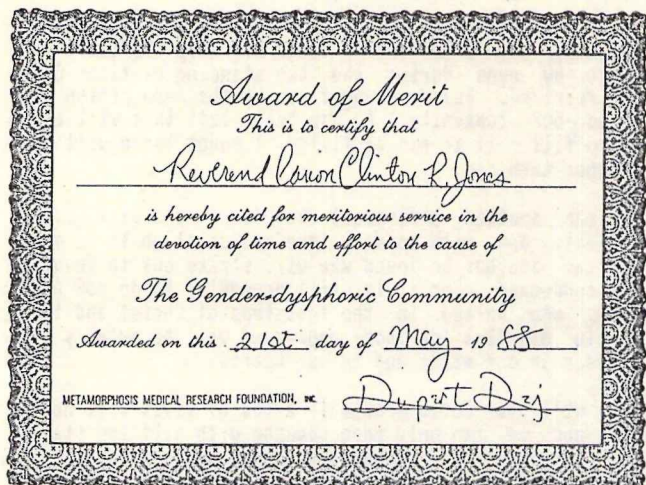 Award of Merit
This is to certify that
Reverend Canon Clinton R. Jones
is hereby cited for meritorious service in the
devotion of time and effort to the cause of
The Gender-dysphoric Community
Awarded on this 21st day of May 1988
METAMORPHOSIS MEDICAL RESEARCH FOUNDATION, INC.
Rupert Raj